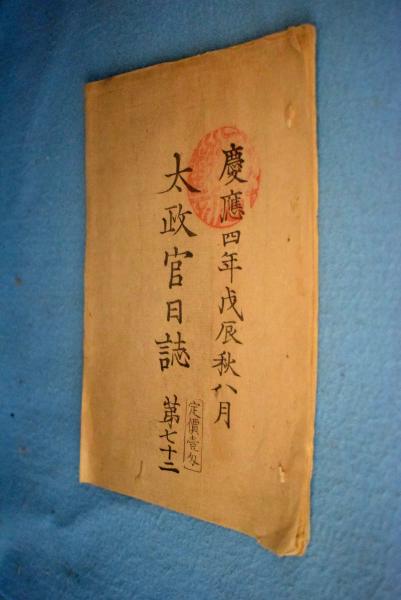 慶應四年戊辰秋八月
太政官日誌 第七十二
定價壹匁